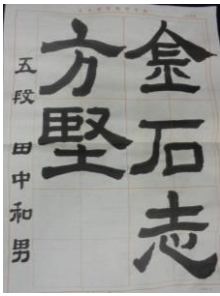 金石志
方堅
五段 田中和男